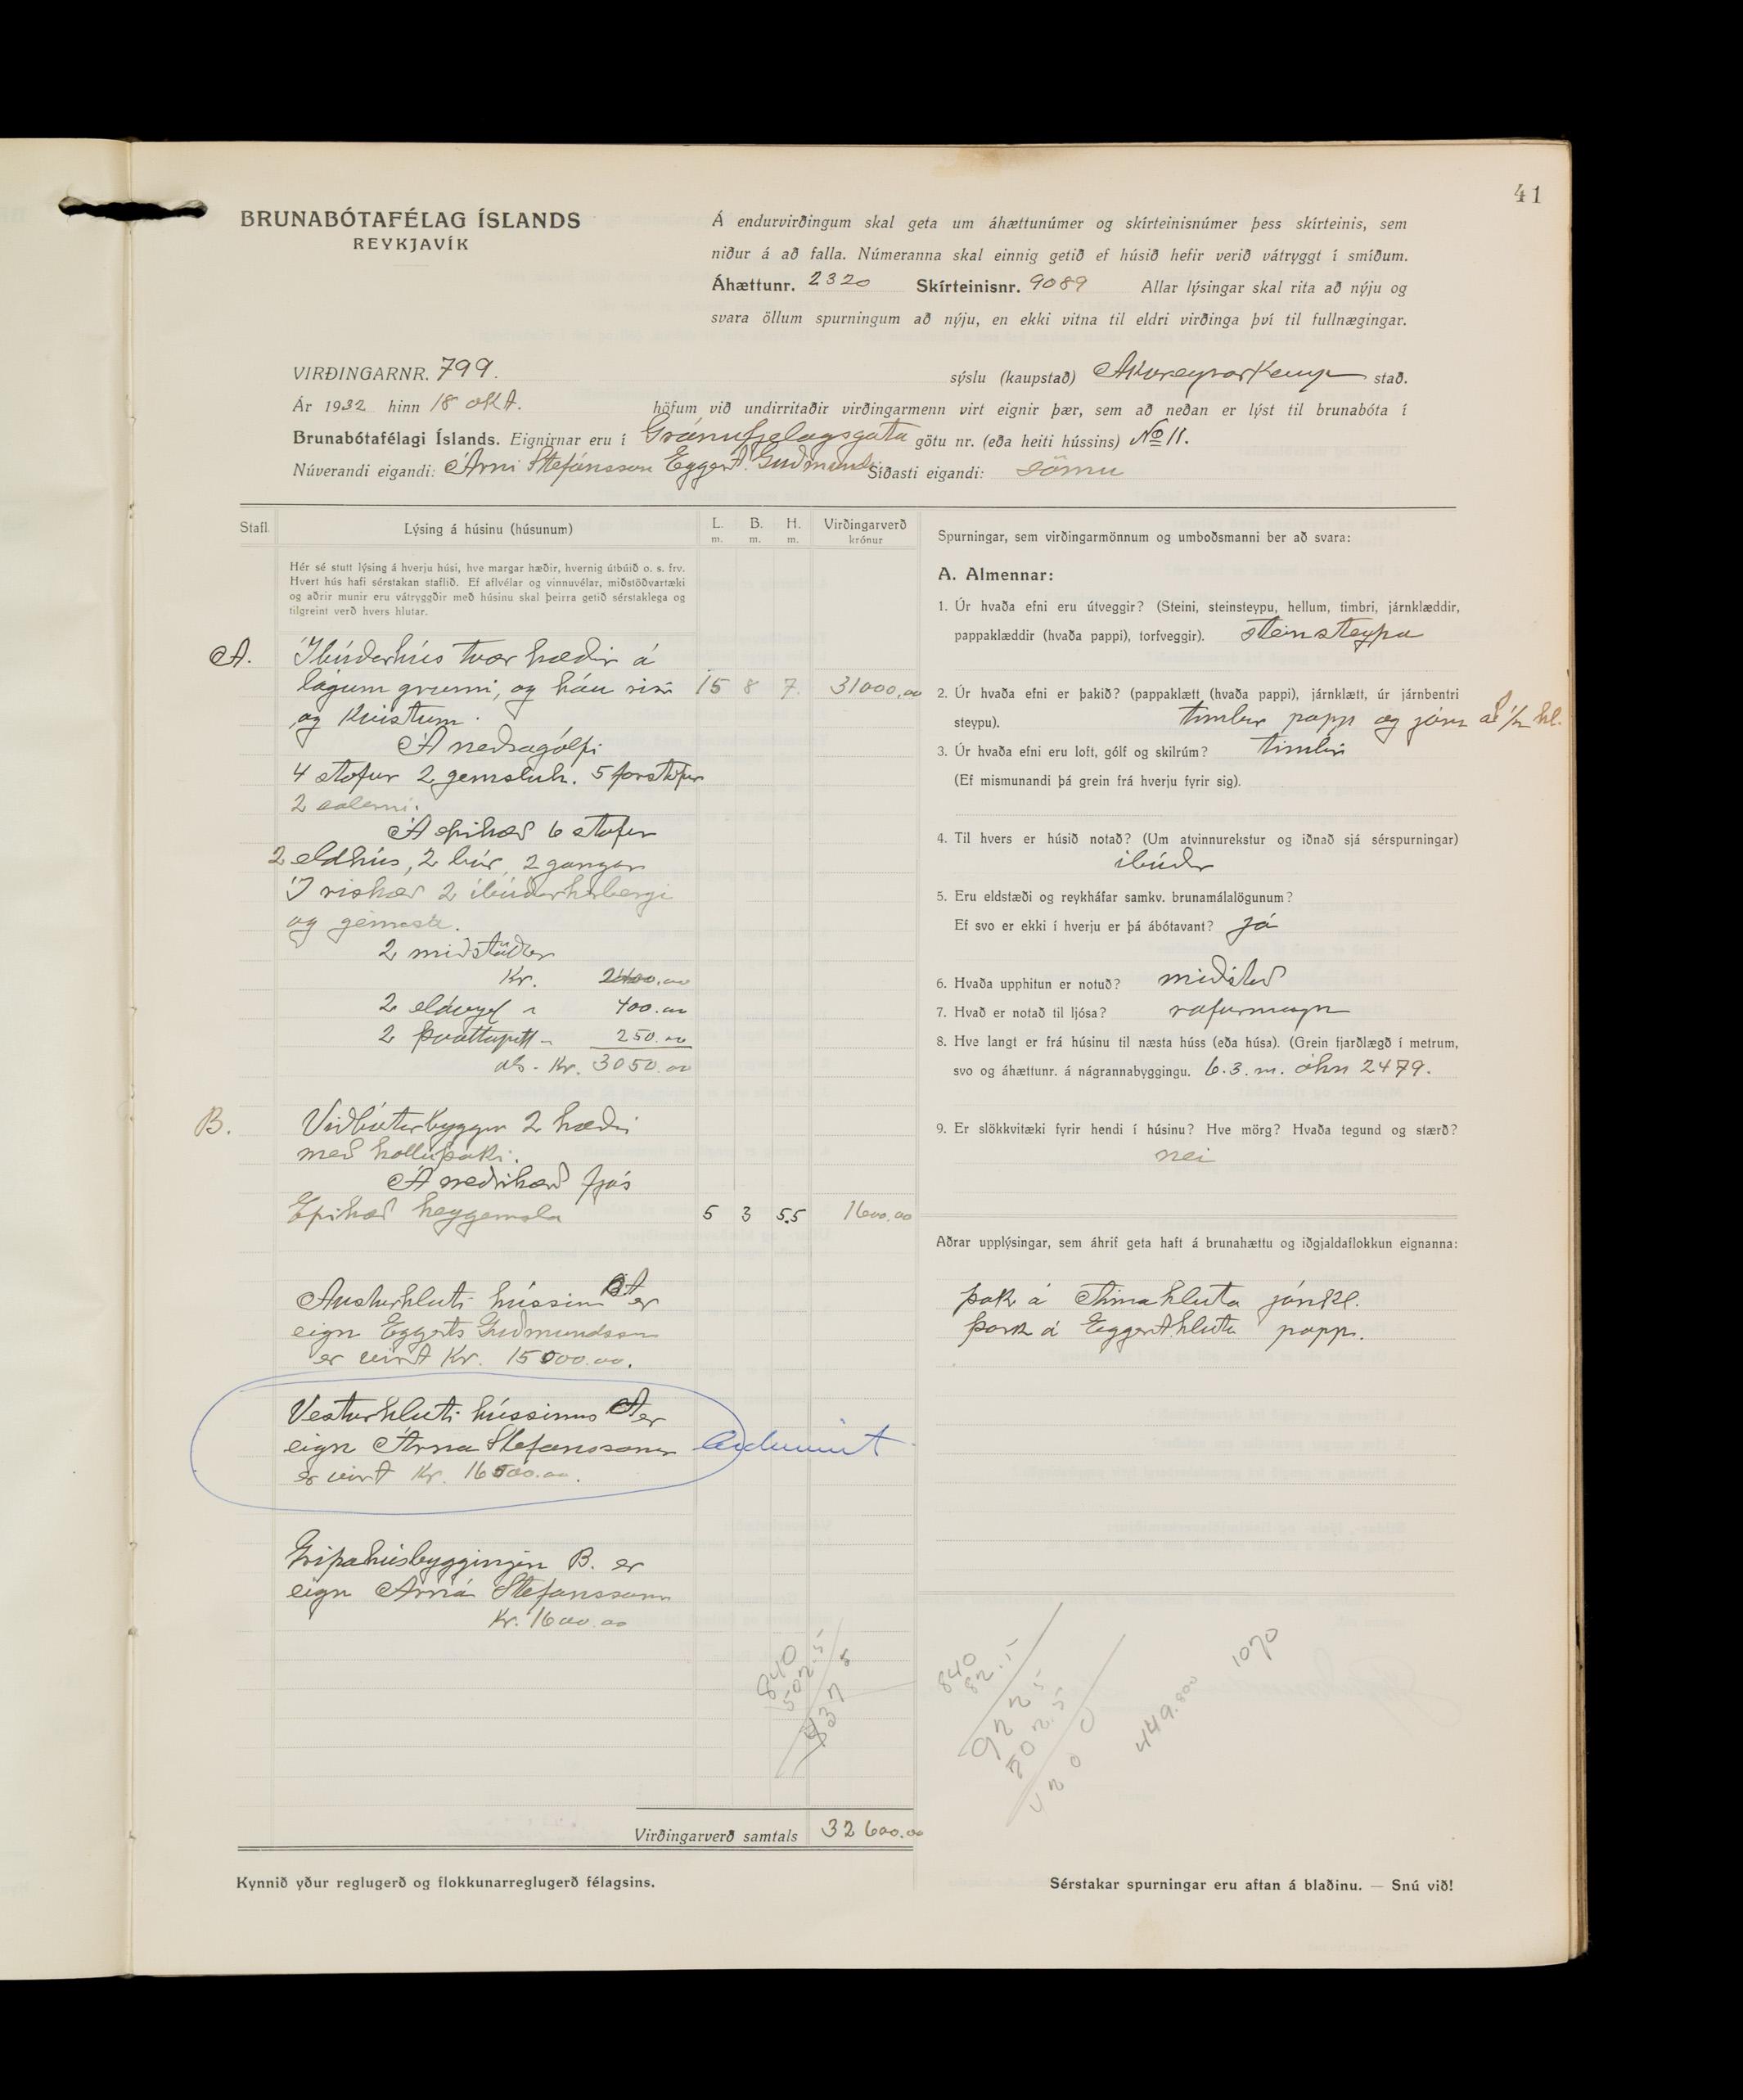 41
BRUNABÓTAFÉLAG ÍSLANDS
REYKJAVÍK
Á endurvirðingum skal geta um áhættunúmer og skírteinisnúmer þess skírteinis, sem
niður á að falla. Númeranna skal einnig getið ef húsið hefir verið vátryggt í smíðum.
Áhættunr. 2320 Skírteinisnr. 9089 Allar lýsingar skal rita að nýju og
svara öllum spurningum að nýju, en ekki vitna til eldri virðinga því til fullnægingar.
VIRÐINGARNR. 799.
sýslu (kaupstað) Akureyrarkaup stað.
Ár 1932 hinn 18 okt. höfum við undirritaðir virðingarmenn virt eignir þær, sem að neðan er lýst til brunabóta í
Brunabótafélagi Íslands. Eignirnar eru í Gránufjelagsgata götu nr. (eða heiti hússins) No 11.
Núverandi eigandi: Árni Stefánsson Eggert Guðmunds. Síðasti eigandi: sömu
Stafl. Lýsing á húsinu (húsunum) L. m. B. m. H. m. Virðingarverð krónur
Hér sé stutt lýsing á hverju húsi, hve margar hæðir, hvernig útbúið o. s. frv.
Hvert hús hafi sérstakan staflið. Ef aflvélar og vinnuvélar, miðstöðvartæki
og aðrir munir eru vátryggðir með húsinu skal þeirra getið sérstaklega og
tilgreint verð hvers hlutar.
A. Íbúðarhús tvær hæðir á
lágum grunni, og háu risi 15 8 7. 31000,00
og kvistum.
Á neðragólfi
4 stofur 2 gemsluh. 5 forstofur
2 salerni.
Á efrihæð 6 stofur
2 eldhús, 2 búr, 2 gangar
Í rishæð 2 íbúðarherbergi
og gemsla.
2 miðstöðvar
Kr. 2400.00
2 eldavjel " 400.00
2 þvottapott - 250.00
als - Kr. 3050.00
B. Viðbótarbygging 2 hæðir
með halluþaki.
Á neðrihæð fjós
Efrihæð heygemsla 5 3 5.5 1600.00
Austurhluti hússins A er
eign Eggerts Guðmundssonar
er virt Kr. 15000.00.
Vesturhluti hússinns A er
eign Árna Stefánssonar Endurvirt
er virt Kr. 16000.00.
Gripahúsbyggingin B. er
eign Árna Stefánssonar
Kr. 1600.00
Virðingarverð samtals 32600.00
Kynnið yður reglugerð og flokkunarreglugerð félagsins.
Spurningar, sem virðingarmönnum og umboðsmanni ber að svara:
A. Almennar:
1. Úr hvaða efni eru útveggir? (Steini, steinsteypu, hellum, timbri, járnklæddir,
pappaklæddir (hvaða pappi), torfveggir). steinsteypu
2. Úr hvaða efni er þakið? (pappaklætt (hvaða pappi), járnklætt, úr járnbentri
steypu). timbur papp og járn að 1/2 hl.
3. Úr hvaða efni eru loft, gólf og skilrúm? timbri
(Ef mismunandi þá grein frá hverju fyrir sig).
4. Til hvers er húsið notað? (Um atvinnurekstur og iðnað sjá sérspurningar)
íbúðar
5. Eru eldstæði og reykháfar samkv. brunamálalögunum?
Ef svo er ekki í hverju er þá ábótavant? já
6. Hvaða upphitun er notuð? miðstöð
7. Hvað er notað til ljósa? rafurmagn
8. Hve langt er frá húsinu til næsta húss (eða húsa). (Grein fjarðlægð í metrum,
svo og áhættunr. á nágrannabyggingu. 6.3. m. áhn 2479.
9. Er slökkvitæki fyrir hendi í húsinu? Hve mörg? Hvaða tegund og stærð?
nei
Aðrar upplýsingar, sem áhrif geta haft á brunahættu og iðgjaldaflokkun eignanna:
þak á Árnahluta járnkl.
þak á Eggerthluta papp.
840
502.5
337 5
840
82.5
922 5
502.5
420 0
449.800
1070
Sérstakar spurningar eru aftan á blaðinu. — Snú við!